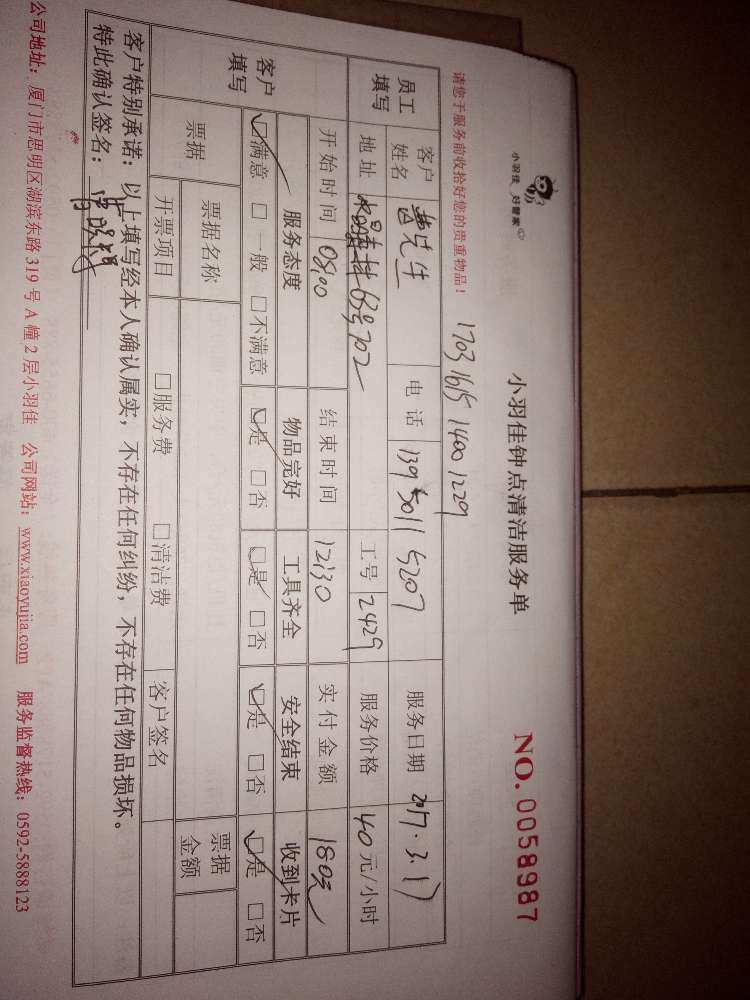 小羽佳 好管家
小羽佳钟点清洁服务单
NO.0058987
请您于服务前收拾好您的贵重物品！
1703 1615 1400 1229
员工填写 客户姓名 先生 电话 139 5011 5207 服务日期 2017.3.17
地址 63号702 工号 2429 服务价格 40元/小时
开始时间 08:00 结束时间 12:30 实付金额 180元
客户填写 服务态度 物品完好 工具齐全 安全结束 收到卡片
□满意 □一般 □不满意 □是 □否 □是 □否 □是 □否 □是 □否
票据 票据名称 票据金额
开票项目 □服务费 □清洁费 客户签名
客户特别承诺：以上填写经本人确认属实，不存在任何纠纷，不存在任何物品损坏。
特此确认签名：
公司地址：厦门市思明区湖滨东路319号A幢2层小羽佳 公司网站：www.xiaoyujia.com 服务监督热线：0592-5888123